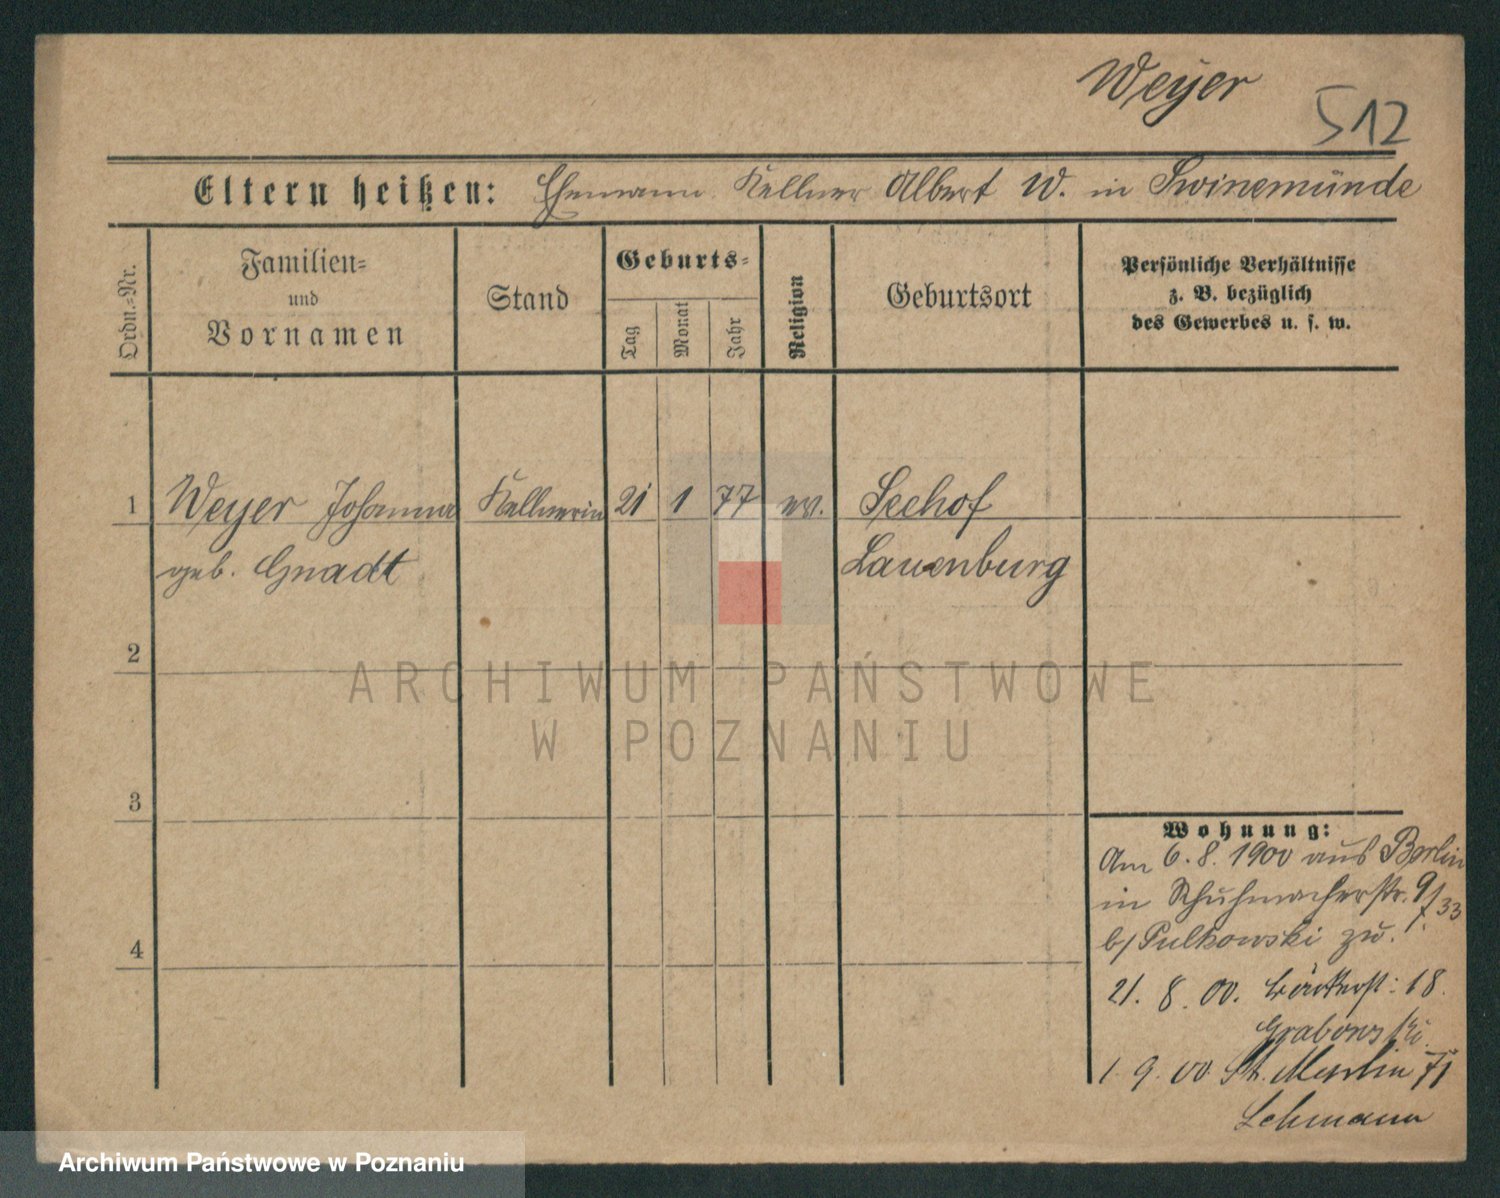 Weyer
512
Eltern heißen: Ehemann Kellner Albert W. in Swinemünde
Ordn.-Nr.
Familien-
und
Vornamen
Stand
Geburts-
Tag
Monat
Jahr
Religion
Geburtsort
Persönliche Verhältnisse
z. B. bezüglich
des Gewerbes u. s. w.
1 Weyer Johanna Kellnerin 21 1 77 ev. Seehof
geb. Gnadt Lauenburg
2
3
4
ARCHIWUM PAŃSTWOWE
W POZNANIU
Wohnung:
Am 6.8.1900 aus Berlin
in Schuhmacherstr. 9/
7.33
b/Pulkowski zu.
21. 8. 00. Bäckerst: 18.
Grabowski.
1. 9. 00 St. Martin 71
Lehmann
Archiwum Państwowe w Poznaniu